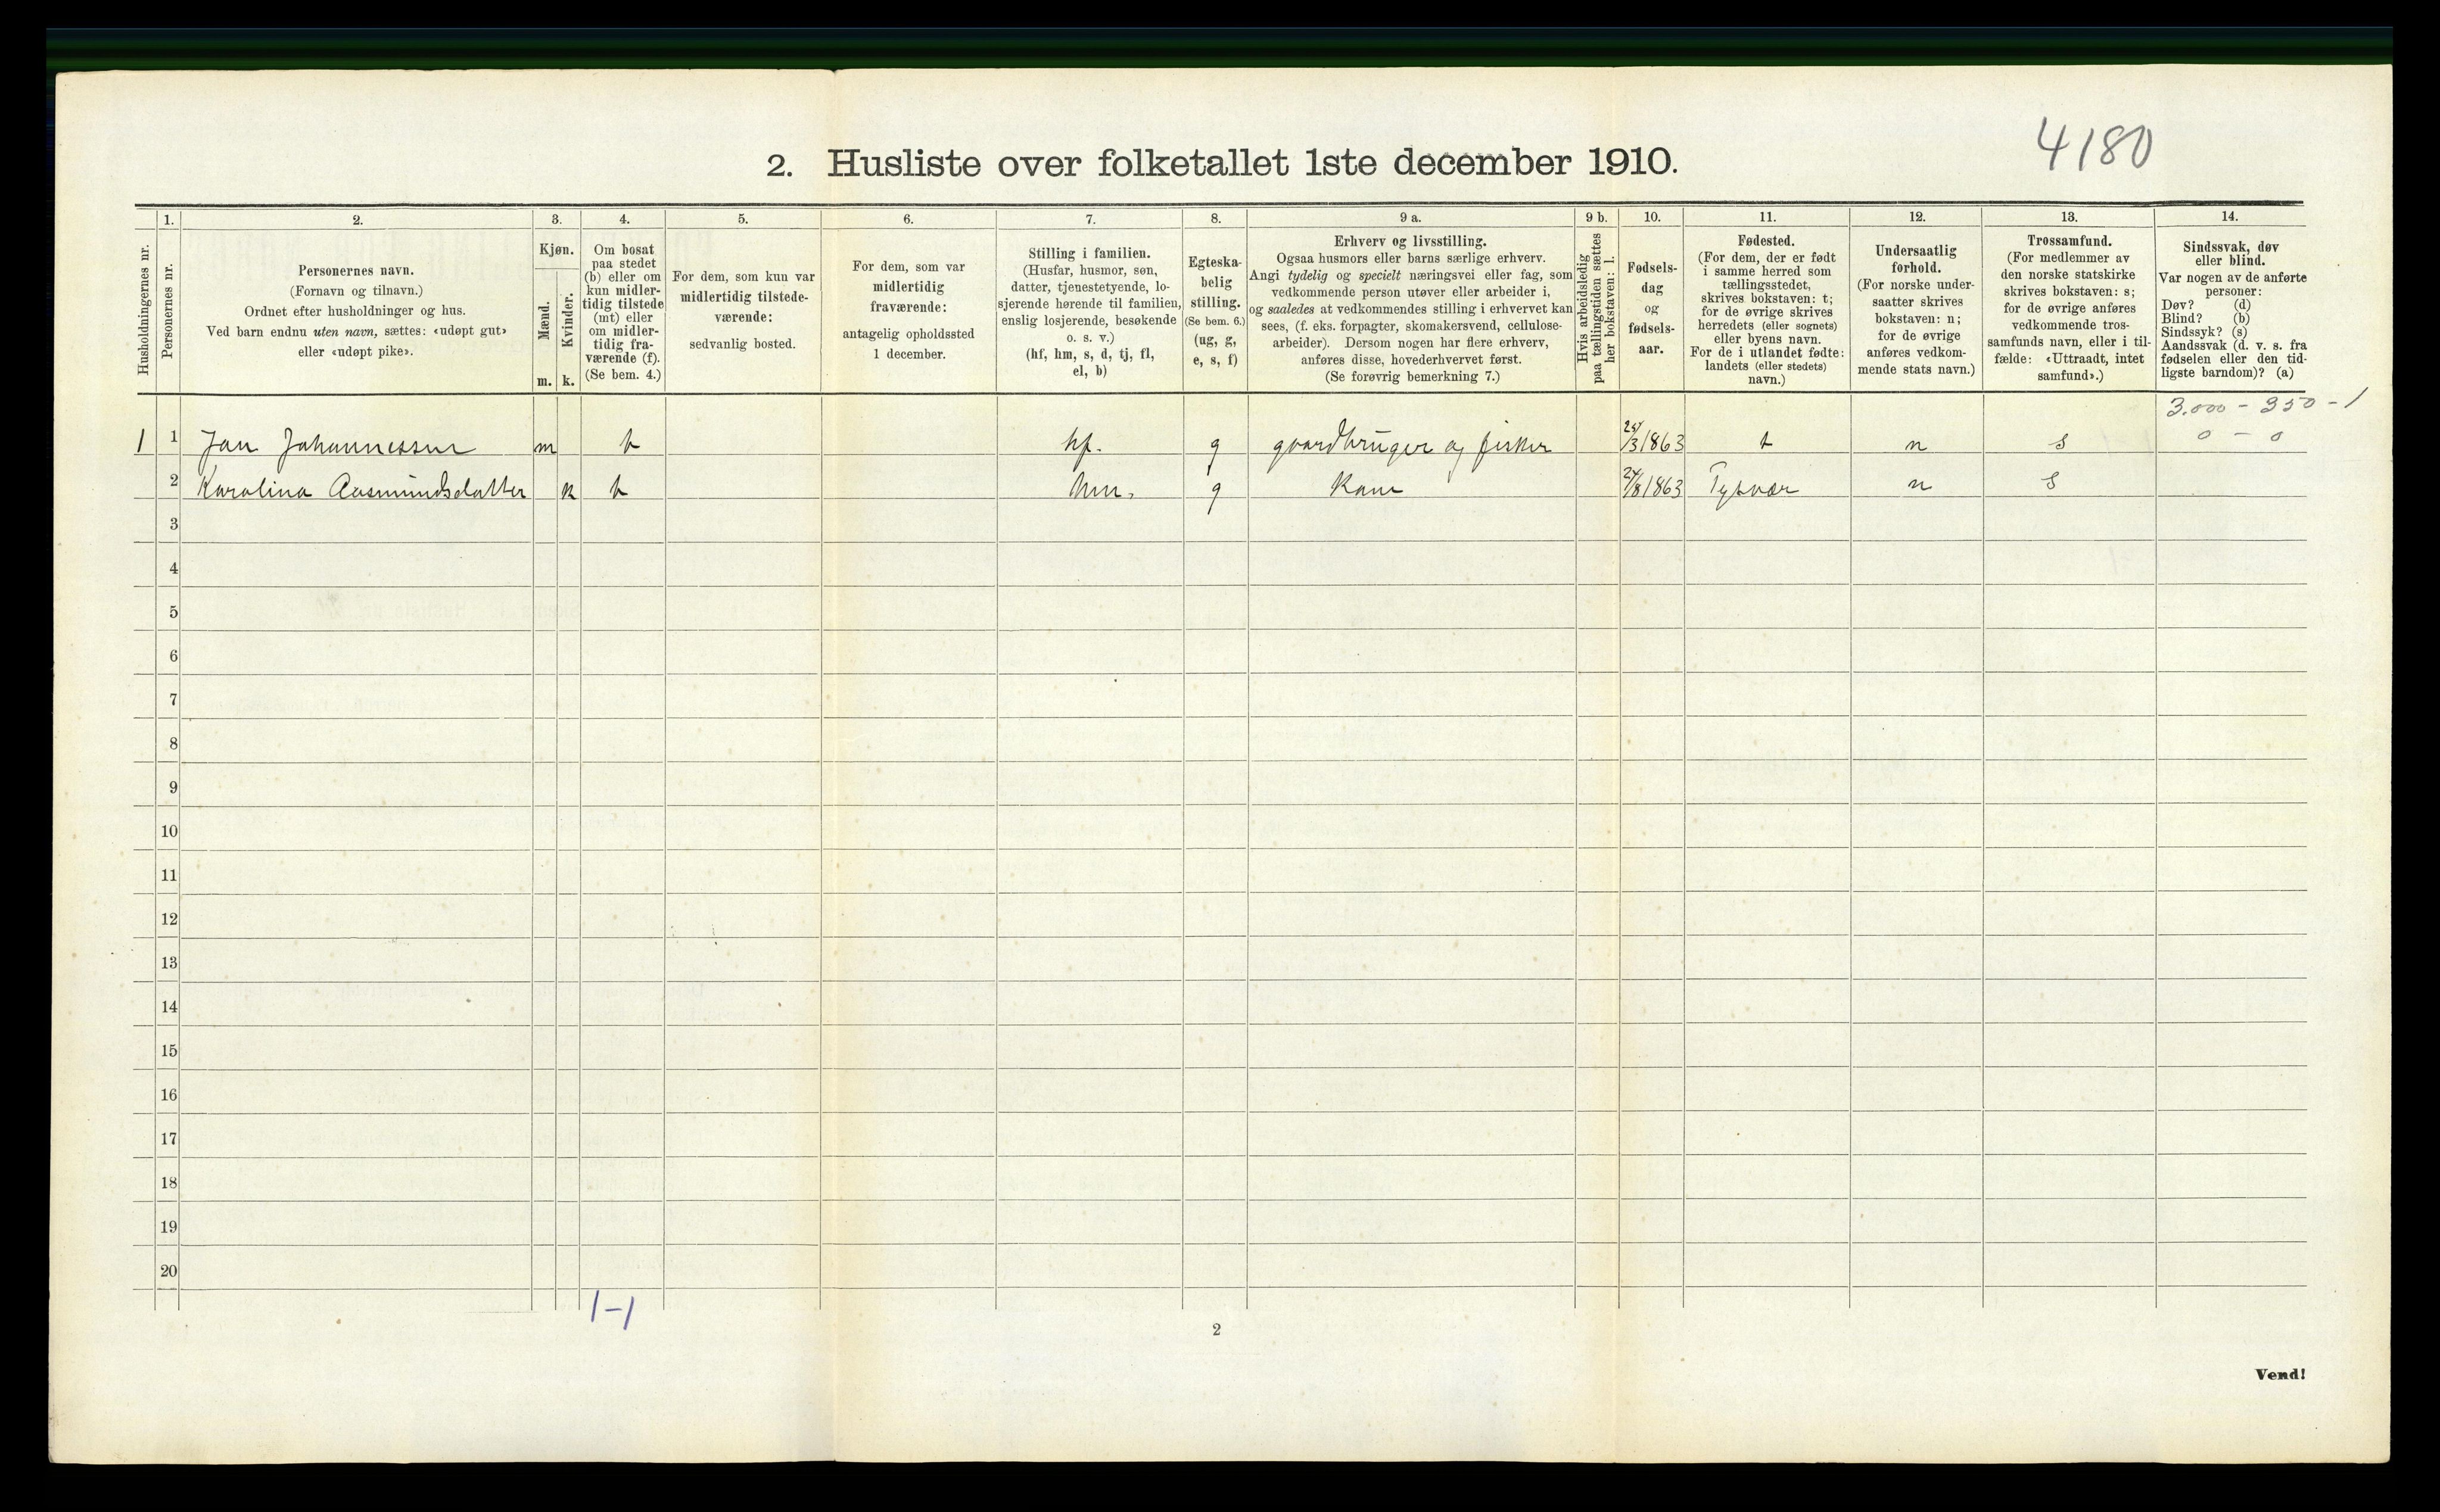 4180
2. Husliste over folketallet 1ste december 1910.
Husholdningernes nr.
1.
Personernes nr.
2.
Personernes navn.
(Fornavn og tilnavn.)
Ordnet efter husholdninger og hus.
Ved barn endnu uten navn, sættes: «udøpt gut»
eller «udøpt pike».
3.
Kjøn.
Mænd.
Kvinder.
m. k.
4.
Om bosat
paa stedet
(b) eller om
kun midler-
tidig tilstede
(mt) eller
om midler-
tidig fra-
værende (f).
(Se bem. 4.)
5.
For dem, som kun var
midlertidig tilstede-
værende:
sedvanlig bosted.
6.
For dem, som var
midlertidig
fraværende:
antagelig opholdssted
1 december.
7.
Stilling i familien.
(Husfar, husmor, søn,
datter, tjenestetyende, lo-
sjerende hørende til familien,
enslig losjerende, besøkende
o. s. v.)
(hf, hm, s, d, tj, fl,
el, b)
8.
Egteska-
belig
stilling.
(Se bem. 6.)
(ug, g,
e, s, f)
9 a.
Erhverv og livsstilling.
Ogsaa husmors eller barns særlige erhverv.
Angi tydelig og specielt næringsvei eller fag, som
vedkommende person utøver eller arbeider i,
og saaledes at vedkommendes stilling i erhvervet kan
sees, (f. eks. forpagter, skomakersvend, cellulose-
arbeider). Dersom nogen har flere erhverv,
anføres disse, hovederhvervet først.
(Se forøvrig bemerkning 7.)
9 b.
Hvis arbeidsledig
paa tællingstiden sættes
her bokstaven: l.
10.
Fødsels-
dag
og
fødsels-
aar.
11.
Fødested.
(For dem, der er født
i samme herred som
tællingsstedet,
skrives bokstaven: t;
for de øvrige skrives
herredets (eller sognets)
eller byens navn.
For de i utlandet fødte:
landets (eller stedets)
navn.)
12.
Undersaatlig
forhold.
(For norske under-
saatter skrives
bokstaven: n;
for de øvrige
anføres vedkom-
mende stats navn.)
13.
Trossamfund.
(For medlemmer av
den norske statskirke
skrives bokstaven: s;
for de øvrige anføres
vedkommende tros-
samfunds navn, eller i til-
fælde: «Uttraadt, intet
samfund».)
14.
Sindssvak, døv
eller blind.
Var nogen av de anførte
personer:
Døv? (d)
Blind? (b)
Sindssyk? (s)
Aandssvak (d. v. s. fra
fødselen eller den tid-
ligste barndom)? (a)
3.000 - 350 - 1
0 - 0
1 1 Jan Johannessen m b hf. g gaardbruger og fisker /3 1863 t n s
2 Karolina Aasmundsdatter k b hm. g Kone /8 1863 Tysvær n s
3
4
5
6
7
8
9
10
11
12
13
14
15
16
17
18
19
20
1-1
2
Vend!